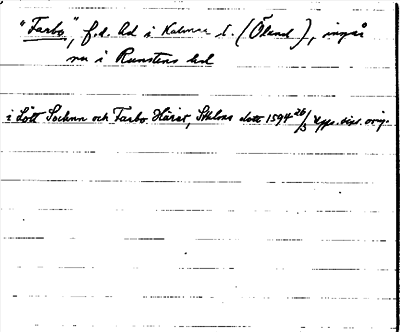 "Farbo", f.d. hd i Kalmar l. (Öland), ingår
nu i Runstens hd
i Lött Socknn och Farbo Häret, Sthlms slott 1594 26/3 Upps. dipl. orig.